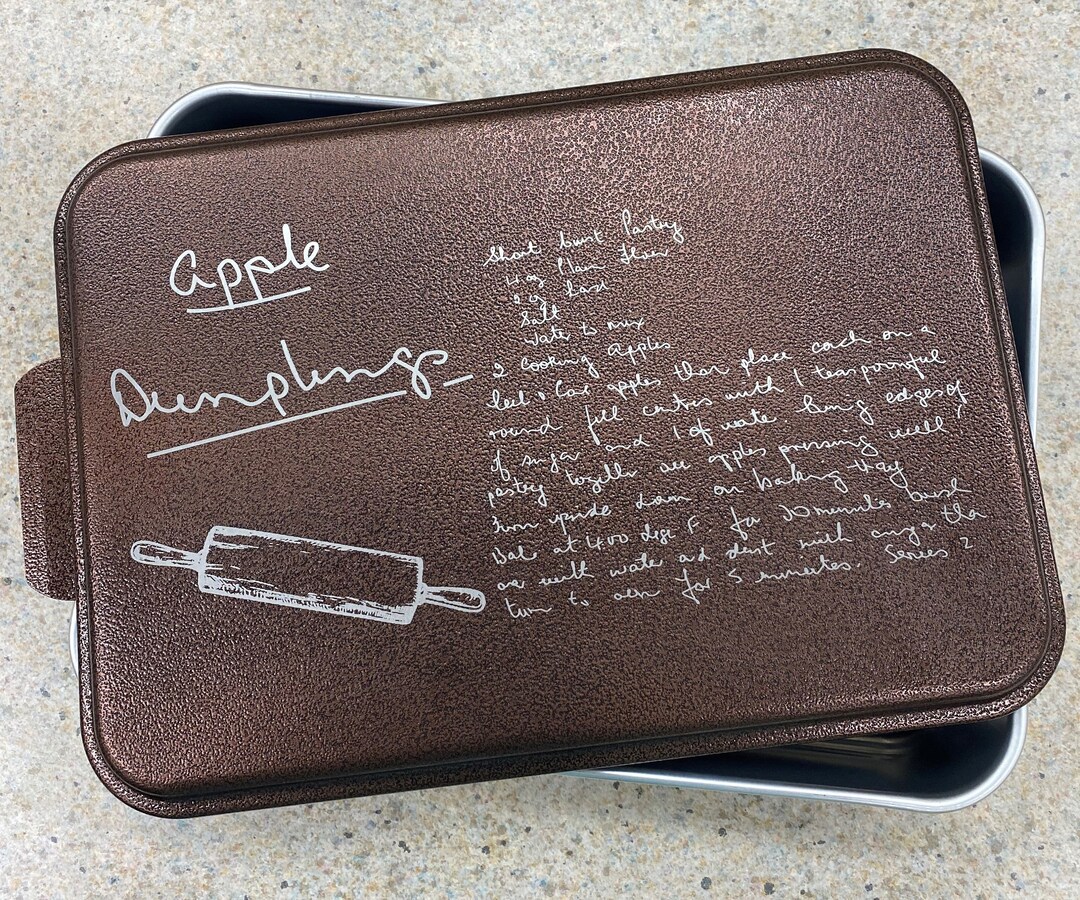 Apple
Dumplings
Short Crust Pastry
4 oz Plain Flour
2 oz Lard
Salt
Water to mix
2 Cooking Apples
Peel & Core apples then place each on a
round fill centres with 1 teaspoonful
of sugar and 1 of water. Bring edges of
pastry together over apples pressing well
Turn upside down on baking tray
Bake at 400 degs F. for 30 minutes brush
over with water and dust with sugar then
turn to oven for 5 minutes. Serves 2